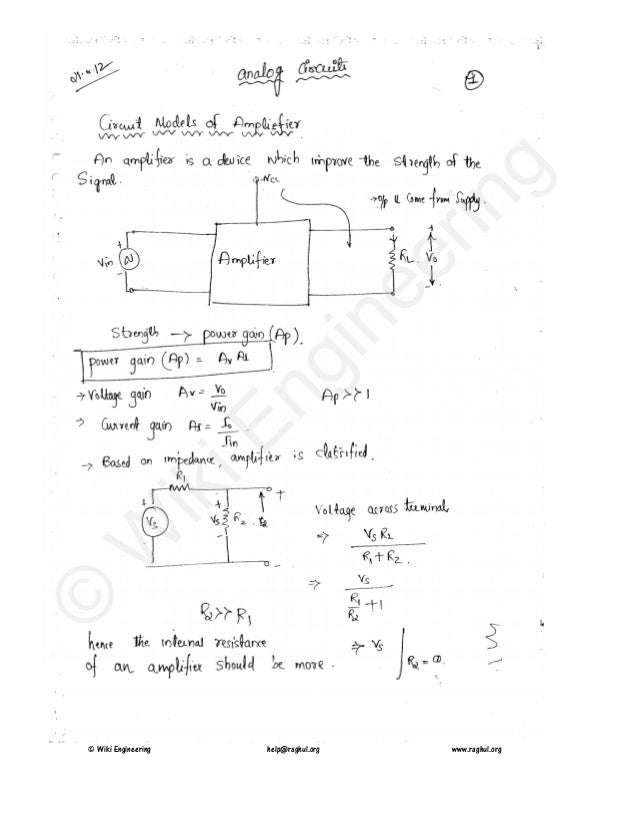 analog Circuits
1
Circuit Models of Ampliefier.
An amplifier is a device which improve the strength of the
Signal.
→ o/p is Come from Supply.
Vin
N
Amplifier
RL
Vo
Strength → power gain (Ap).
power gain (Ap) = Av AI
→ Voltage gain Av = Vo / Vin
Ap >> 1
→ Current gain AI = Io / Iin
→ Based on impedance, amplifier is classified.
R1
Vs
Vs R2
Voltage across terminal
⇒ Vs R2 / R1 + R2.
⇒ Vs / R1/R2 + 1
R2 >> R1
hence the internal resistance
of an amplifier should be more.
⇒ Vs | R2 = ∞.
© WikiEngineering
© Wiki Engineering help@raghul.org www.raghul.org